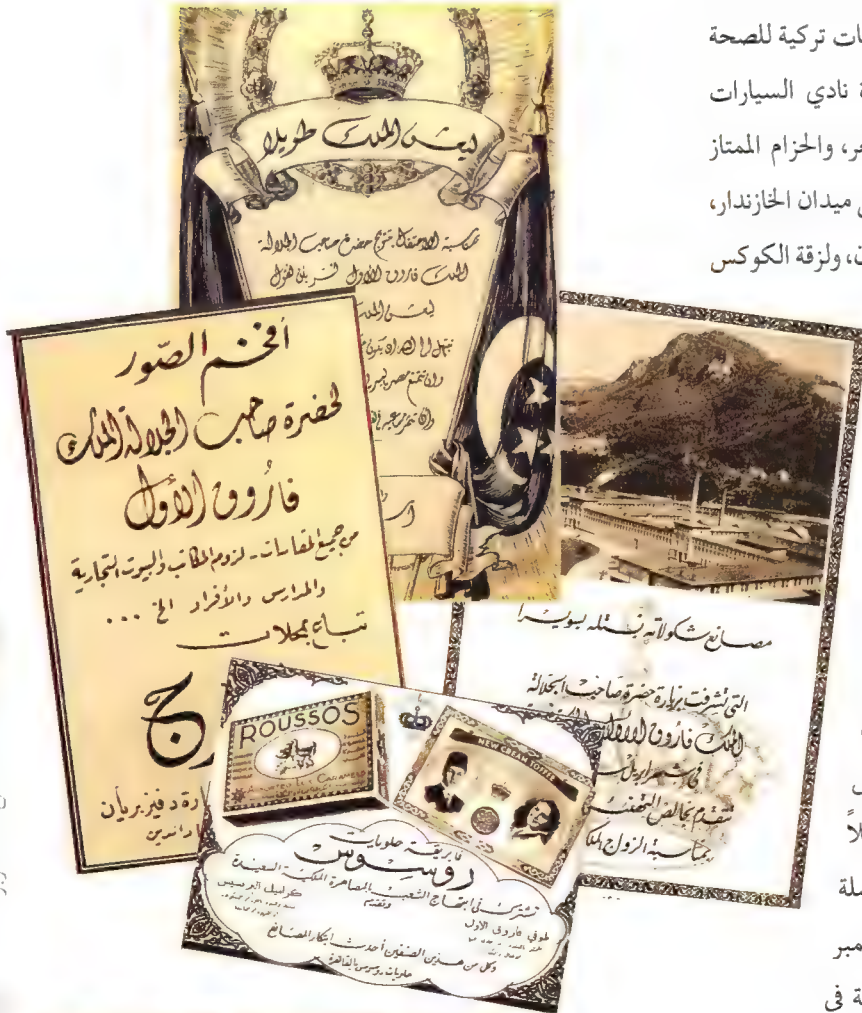 ات تركية للصحة
نادي السيارات
والحزام الممتاز
ميدان الخازندار،
ولزقة الكوكس
ليعش الملك طويلا
بمناسبة الاحتفال بتتويج حضرة صاحب الجلالة
الملك فاروق الأول
ليعش الملك
أفخم الصور
لحضرة صاحب الجلالة الملك
فاروق الأول
من جميع المقاسات - لزوم المكاتب والبيوت التجارية
والمدارس والأفراد الخ ...
تباع بمحلات
مصانع شكولاته نستله بسويسرا
التي تشرفت بزيارة حضرة صاحب الجلالة
الملك فاروق الأول
في شهر ابريل
تتقدم بخالص التهنئة
بمناسبة الزواج
ROUSSOS
CARAMELS
NEW CREAM TOFFEE
فابريقة حلويات
روسوس
تشترك في ابتهاج الشعب بالمصاهرة الملكية السعيدة
وتقدم
طوفي فاروق الأول
وكل من هذين الصنفين أحدث ابتكار المصانع
حلويات روسوس بالقاهرة
لاً
ملة
مبر
ة في